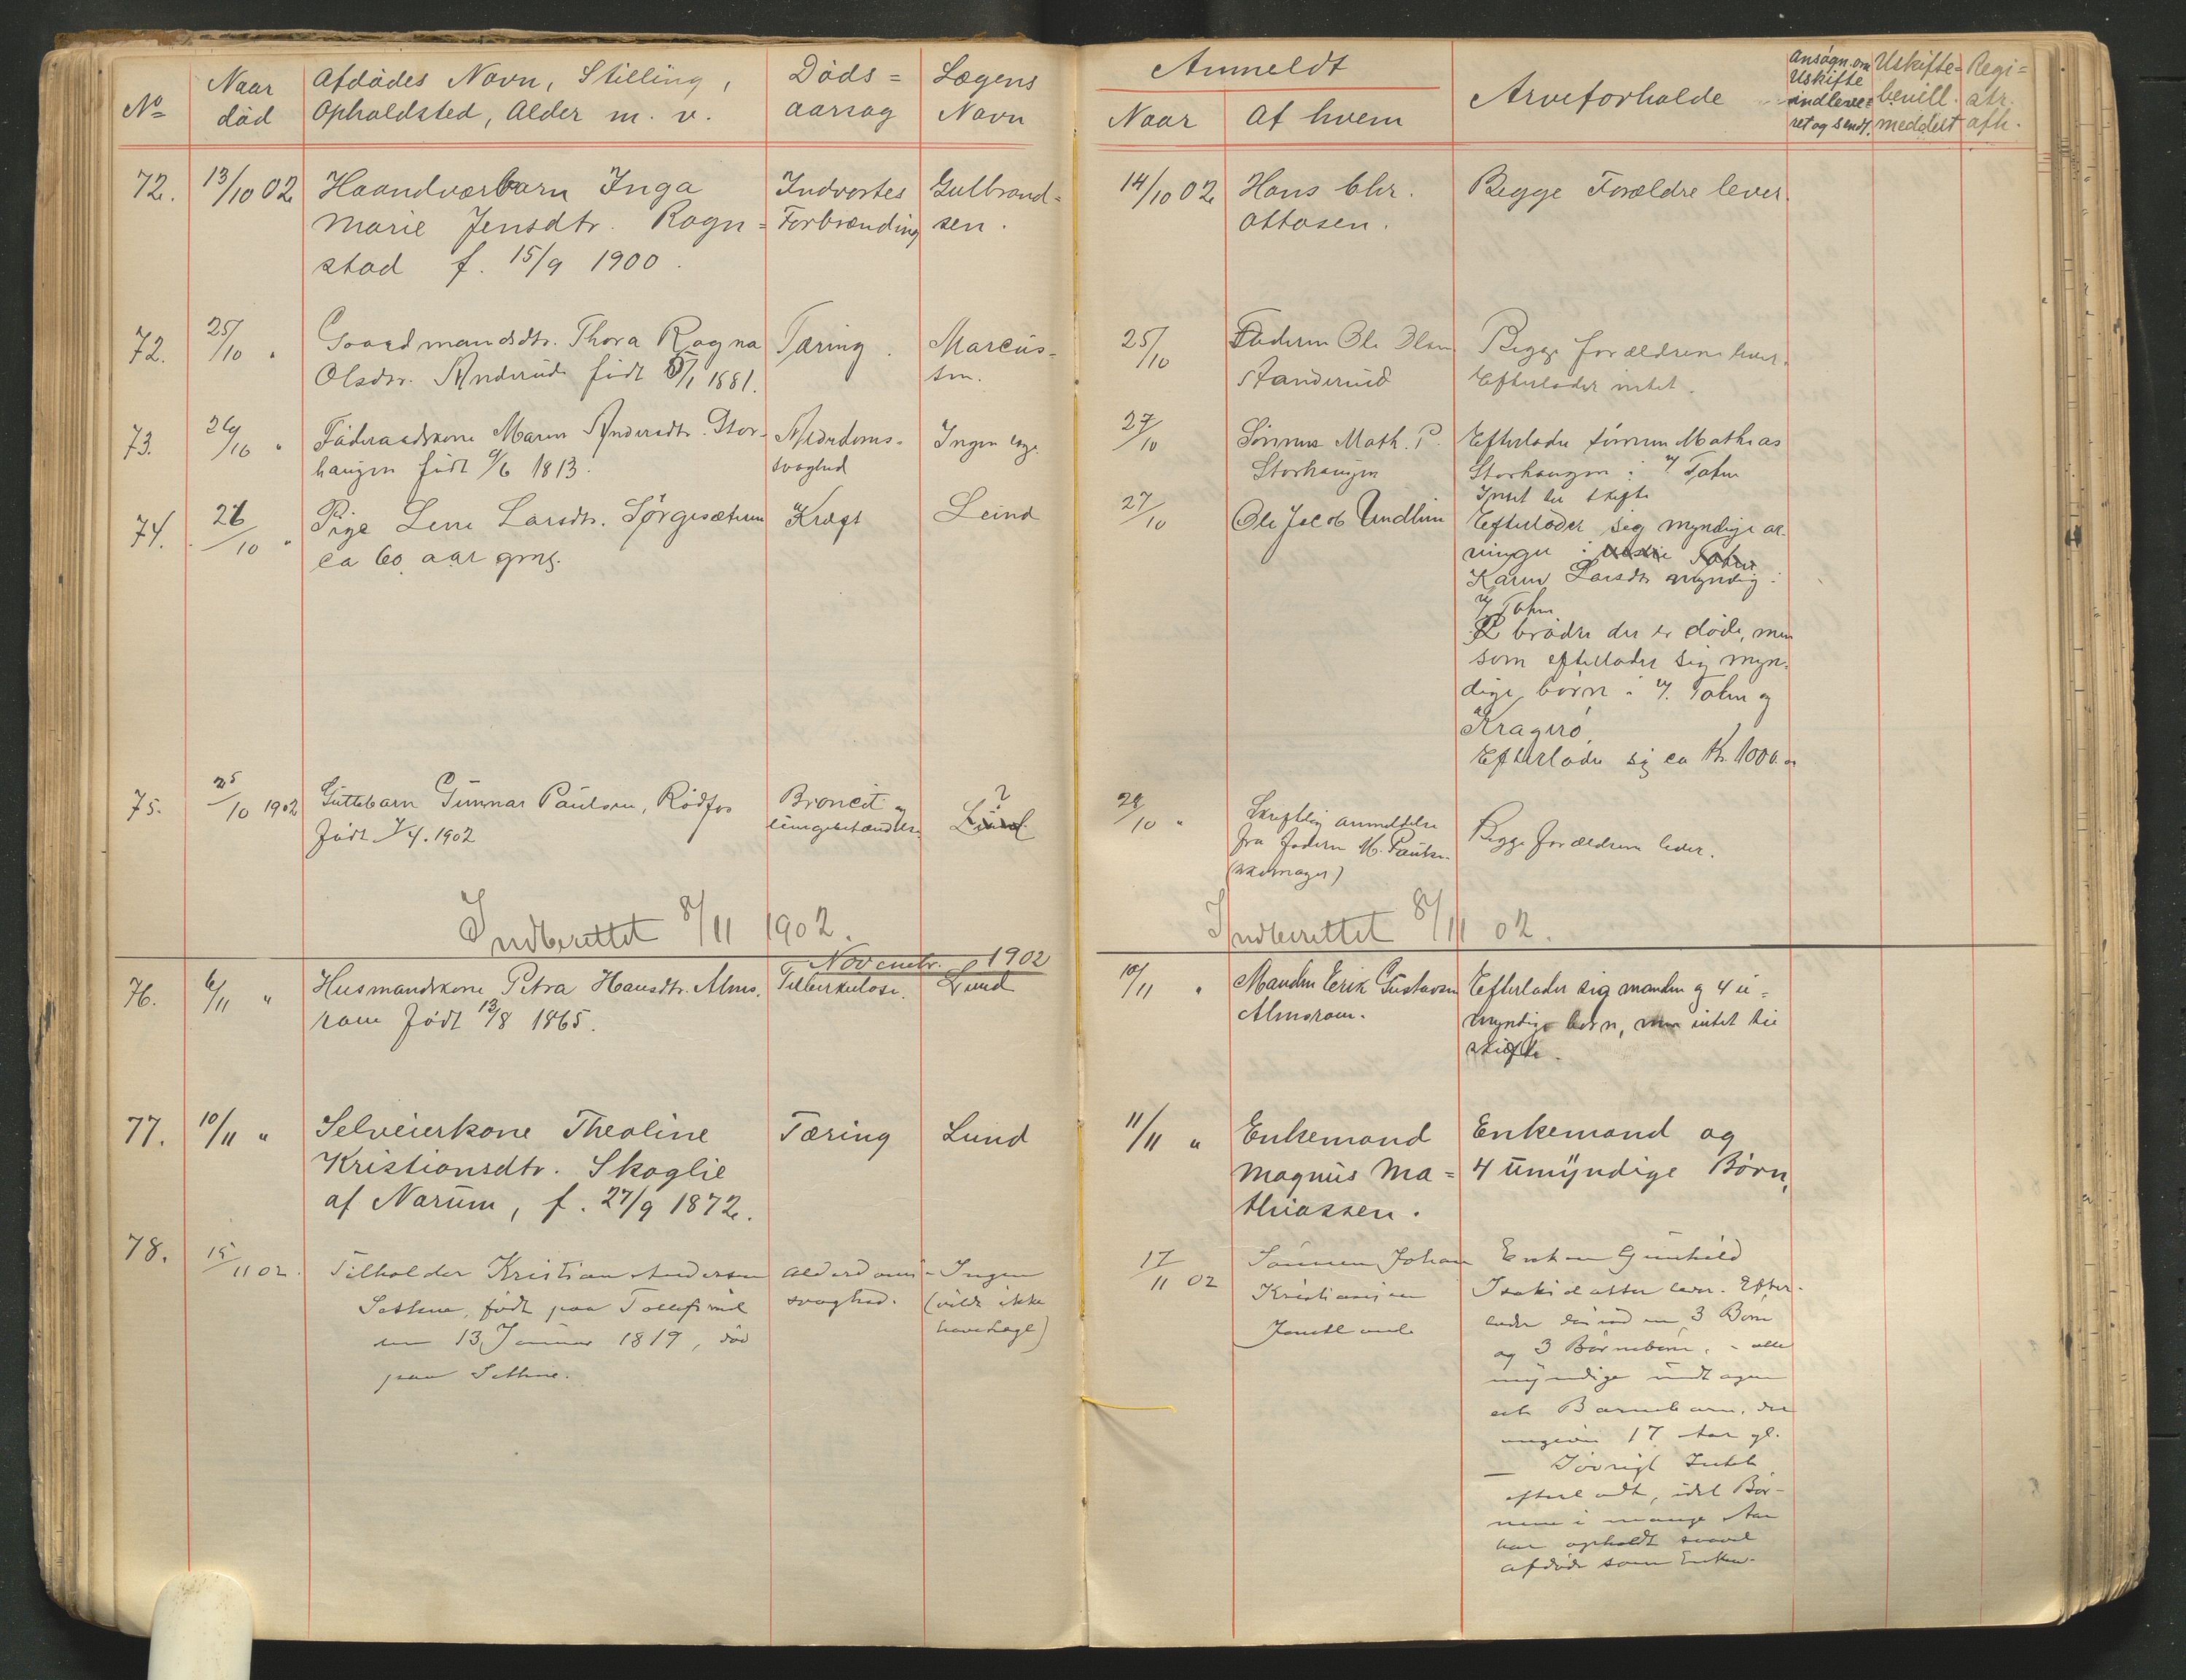 No
Naar
död
Afdödes Navn, Stilling,
Opholdsted, Alder m. v.
Döds=
aarsag
Lægens
Navn
Anmeldt
Naar
Af hvem
Arveforholde
Ansøgn. om
Uskifte
indleve=
ret og sendt.
Uskifte=
bevill.
meddelt
Regi=
str.
afh.
72.
13/10 02
Haandværbarn Inga
Marie Jensdtr. Rogn=
stad f. 15/9 1900.
Indvortes
Forbrænding
Gulbrand=
sen.
14/10 02
Hans Chr.
Ottosen.
Begge Forældre lever.
72.
25/10 "
Gaardmandsdtr. Thora Ragna
Olsdtr. født 5/1 1881.
Tæring.
Marcus-
sen.
25/10
Faderen Ole Olsen
Begge forældrene lever.
Efterlader intet.
73.
26/10 "
Føderaadskone Maren Andersdtr. Stor-
haugen født 9/6 1813.
Alderdoms-
svaghed
Ingen læge
27/10
Sönnen Math. P.
Storhaugen
Efterlader sönnen Mathias
Storhaugen i V. Toten
Intet til skifte
74.
26/10 "
Pige Lene Larsdtr.
ca 60 aar gml.
Kræft
Lund
27/10
Ole Jacob
Efterlader sig myndige ar-
vinger i
Karen Larsdtr myndig i
V. Toten
2 brödre der er döde, men
som efterlader sig myn-
dige börn i V. Toten og
Kragerö.
Efterlader sig ca Kr. 1000.00
75.
25/10 1902
Guttebarn Gunnar Paulsen, Rödfos
født 1/4. 1902
Broncit og
lungebetændelse
?
Lund
28/10 "
Skriftlig anmeldelse
fra faderen M. Paulsen
(skomager)
Begge forældrene lever.
Indberettet 8/11 1902.
Indberettet 8/11 02.
Novembr. 1902
76.
6/11 "
Husmandskone Petra Hansdtr. Alms-
født 13/8 1865.
Tuberkulose.
Lund
10/11 "
Manden Erik Gustavsen
Efterlader sig manden og 4 u=
myndige börn, men intet til
skifte.
77.
10/11 "
Selveierkone Theoline
Kristiansdtr. Skoglie
af Narum, f. 27/9 1872.
Tæring
Lund
11/11 "
Enkemand
Magnus Ma=
thiassen.
Enkemand og
4 umyndige Börn,
78.
15/11 02.
Kristian Andersen
Sethne, født paa
den 13 Januar 1819, död
paa Sethne.
Alderdoms-
svaghed.
Ingen
(vilde ikke
have Læge)
17/11 02
Sönnen Johan
Kristiansen
Enken Gunhild
lever. Efter-
lader desuden 3 Börn
og 3 Börnebörn, - alle
myndige undtagen
et Barnebarn, der
17 Aar gl.
— Iövrigt Intet
efterladt, idet Bör-
nene i mange Aar
har opholdt saavel
afdöde som Enken.